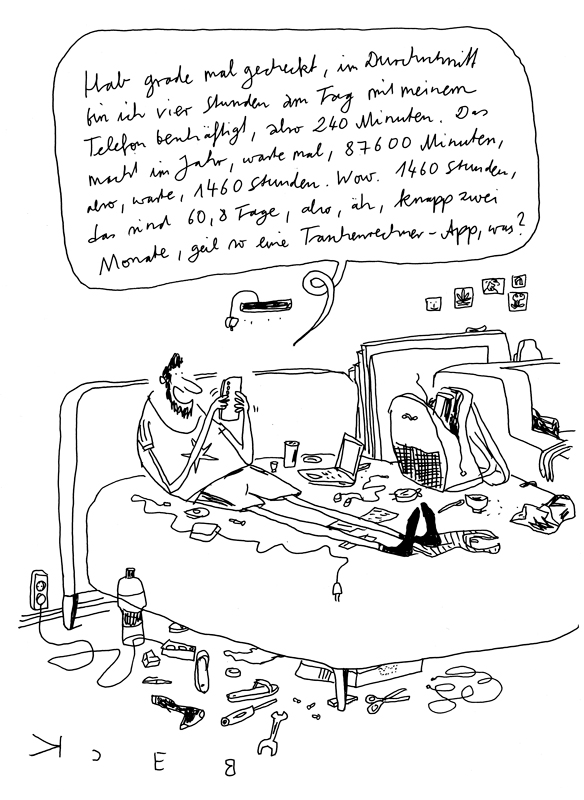 Hab grade mal gecheckt, im Durchschnitt
bin ich vier Stunden am Tag mit meinem
Telefon beschäftigt, also 240 Minuten. Das
macht im Jahr, warte mal, 87600 Minuten,
also, warte, 1460 Stunden. Wow. 1460 Stunden,
das sind 60,8 Tage, also, äh, knapp zwei
Monate, geil so eine Taschenrechner-App, was?
BECK